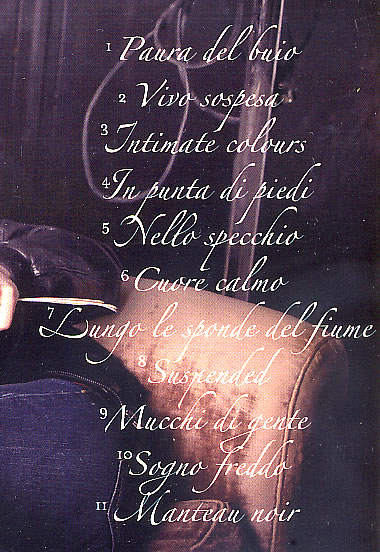 1 Paura del buio
2 Vivo sospesa
3 Intimate colours
4 In punta di piedi
5 Nello specchio
6 Cuore calmo
7 Lungo le sponde del fiume
8 Suspended
9 Mucchi di gente
10 Sogno freddo
11 Manteau noir